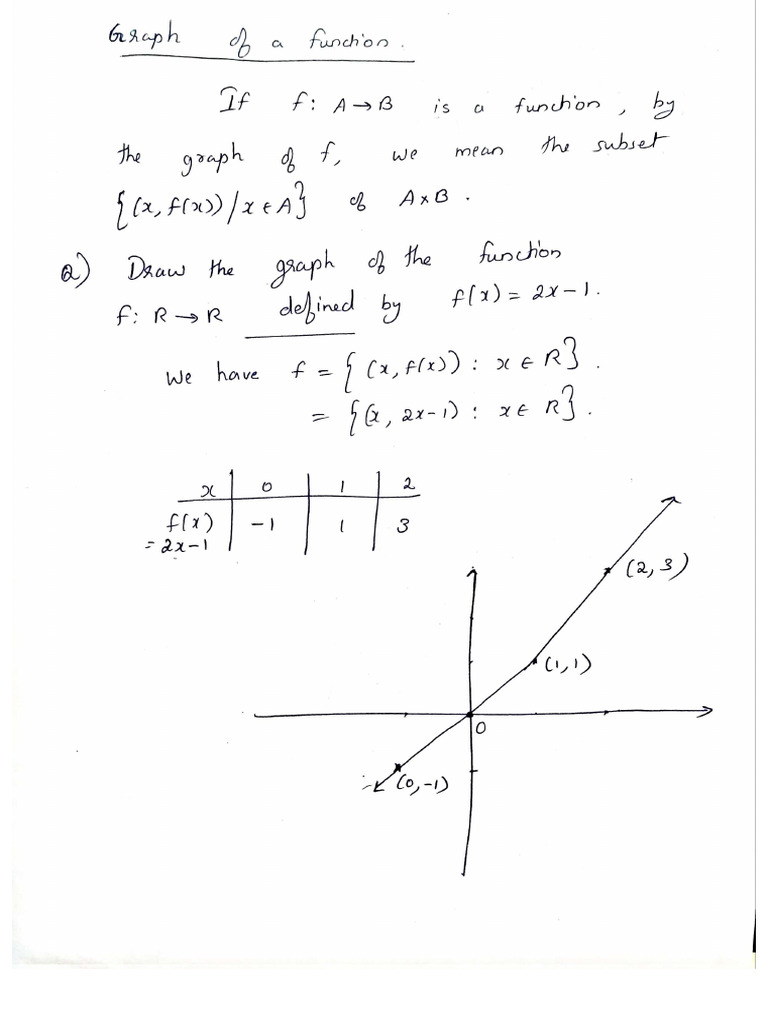 Graph of a function.
If f: A→B is a function, by
the graph of f, we mean the subset
{(x, f(x)) / x ∈ A} of A×B.
Q) Draw the graph of the function
f: R→R defined by f(x) = 2x-1.
We have f = { (x, f(x)) : x ∈ R}.
= {(x, 2x-1) : x ∈ R}.
x | 0 | 1 | 2
f(x) = 2x-1 | -1 | 1 | 3
(2, 3)
(1, 1)
0
(0, -1)